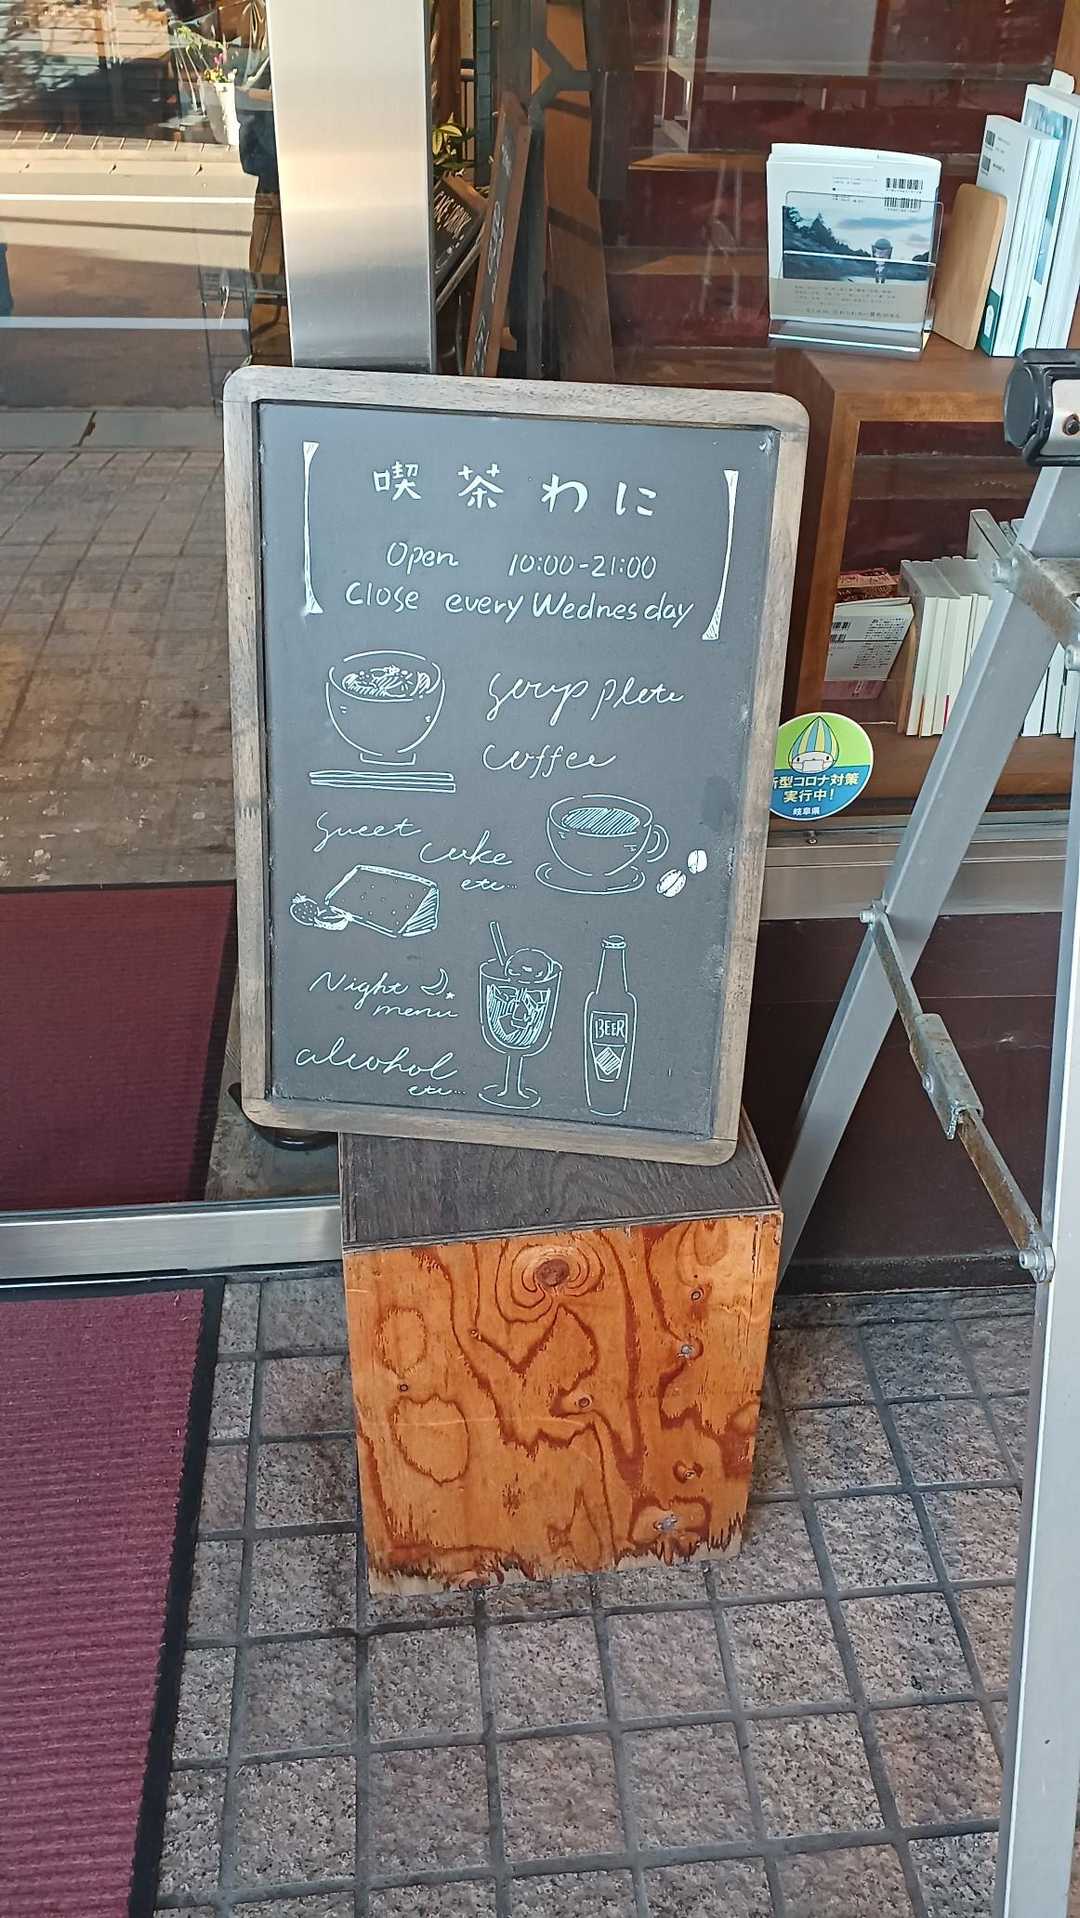 喫茶わに
Open 10:00-21:00
Close every Wednesday
Soup plate
Coffee
Sweet
cake
etc...
Night
menu
alcohol
etc...
BEER
新型コロナ対策
実行中!
岐阜県